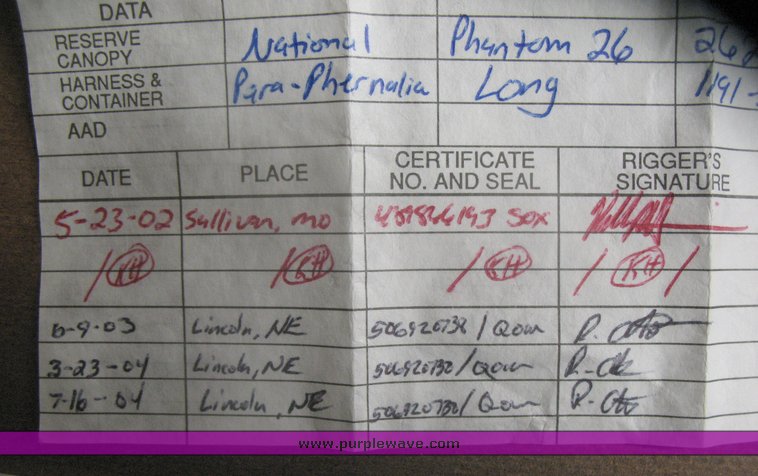 DATA
RESERVE CANOPY National Phantom 26
HARNESS & CONTAINER Para-Phernalia Long
AAD
DATE PLACE CERTIFICATE NO. AND SEAL RIGGER'S SIGNATURE
5-23-02 Sullivan, mo
/ KH / KH / KH / KH /
6-9-03 Lincoln, NE 506920732 / Qown
3-23-04 Lincoln, NE 506920732 / Qown
7-16-04 Lincoln, NE 506920732 / Qown
www.purplewave.com